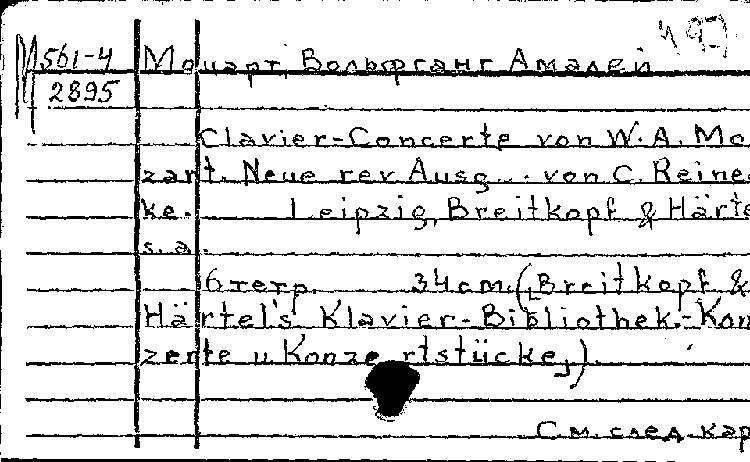 М561-4 Моцарт, Вольфганг Амадей
2895
Clavier-Concerte von W. A. Mo-
zart. Neue rev Ausg... von C. Reinec-
ke. Leipzig, Breitkopf & Härte
s.a.
6 тетр. 34 см. (Breitkopf &
Härtel's Klavier-Bibliothek.-Kon
zerte u Konzertstücke).
См. след. кар